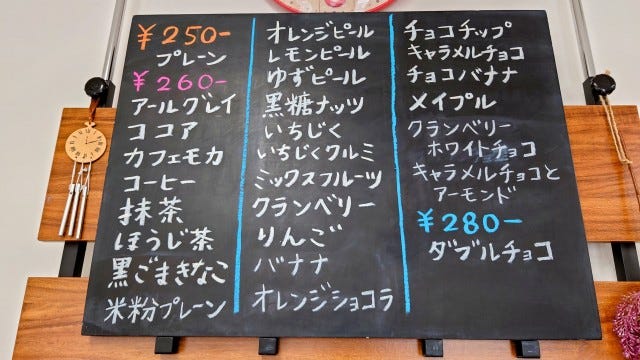 ¥250-
プレーン
¥260-
アールグレイ
ココア
カフェモカ
コーヒー
抹茶
ほうじ茶
黒ごまきなこ
米粉プレーン
オレンジピール
レモンピール
ゆずピール
黒糖ナッツ
いちじく
いちじくクルミ
ミックスフルーツ
クランベリー
りんご
バナナ
オレンジショコラ
チョコチップ
キャラメルチョコ
チョコバナナ
メイプル
クランベリー
ホワイトチョコ
キャラメルチョコと
アーモンド
¥280-
ダブルチョコ